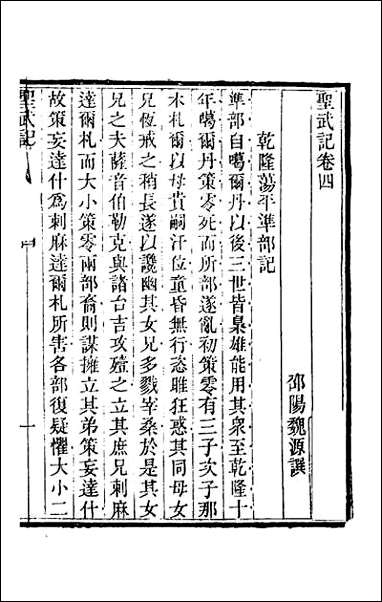 聖武記卷四
邵陽魏源譔
乾隆蕩平準部記
準部自噶爾丹以後三世皆梟雄能用其衆至乾隆十
年噶爾丹策零死而所部遂亂初策零有三子次子那
木札爾以母貴嗣汗位童昏無行恣睢狂惑其同母女
兄恆戒之稍長遂以讒幽其女兄多戮宰桑於是其女
兄之夫薩音伯勒克與諸台吉攻殪之立其庶兄刺麻
達爾札而大小策零兩部裔則謀擁立其弟策妄達什
故策妄達什爲刺麻達爾札所害各部復疑懼大小二
聖武記
一